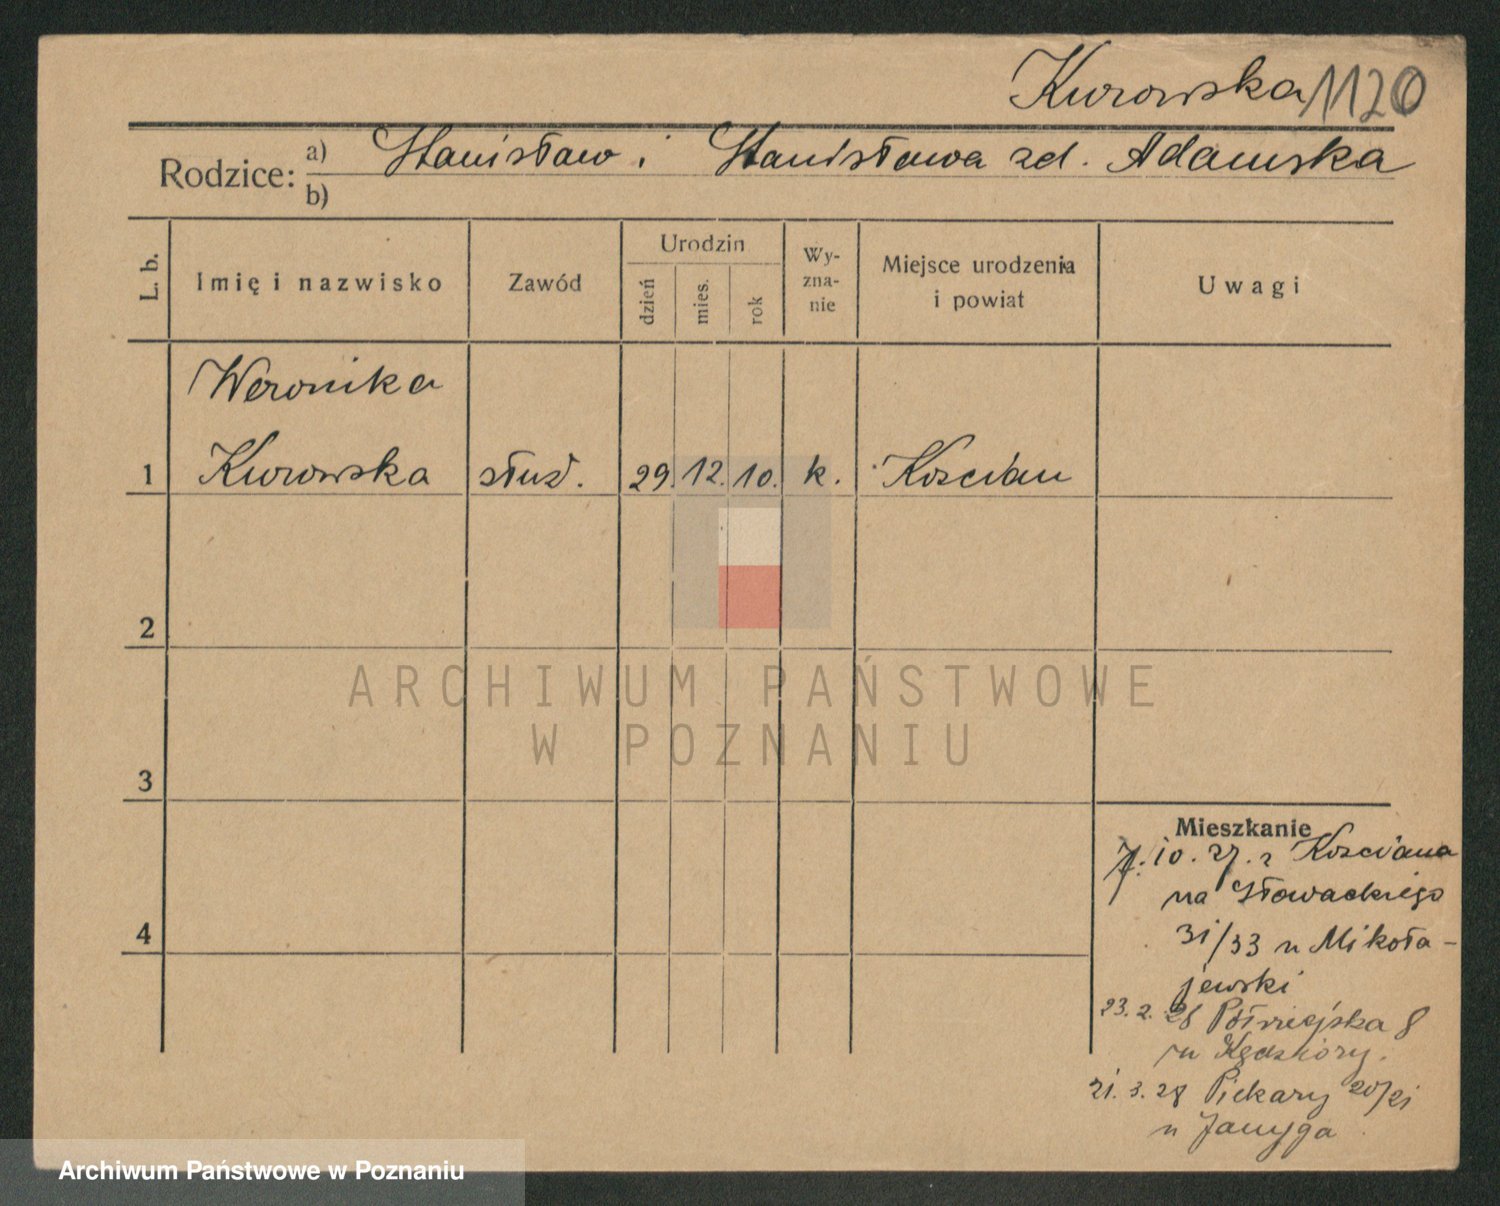 Kurowska 1120
Rodzice: a) Stanisław i Stanisława zd. Adamska
b)
L. b.
Imię i nazwisko
Zawód
Urodzin
dzień
mies.
rok
Wy-
zna-
nie
Miejsce urodzenia
i powiat
Uwagi
Weronika
1 Kurowska służ. 29. 12. 10. k. Kościan
2
3
4
Mieszkanie
7. 10. 27. z Kościana
na Słowackiego
31/33 u Mikoła-
jewski
23. 2. 28 Półwiejska 8
u Kędziory.
21. 3. 28 Piekary 20/21
u
ARCHIWUM PAŃSTWOWE
W POZNANIU
Archiwum Państwowe w Poznaniu